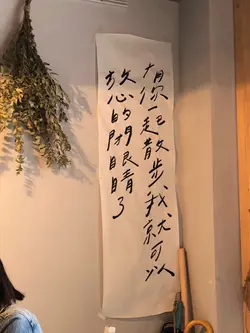 有你一起散步、我就可以
放心的閉眼睛了